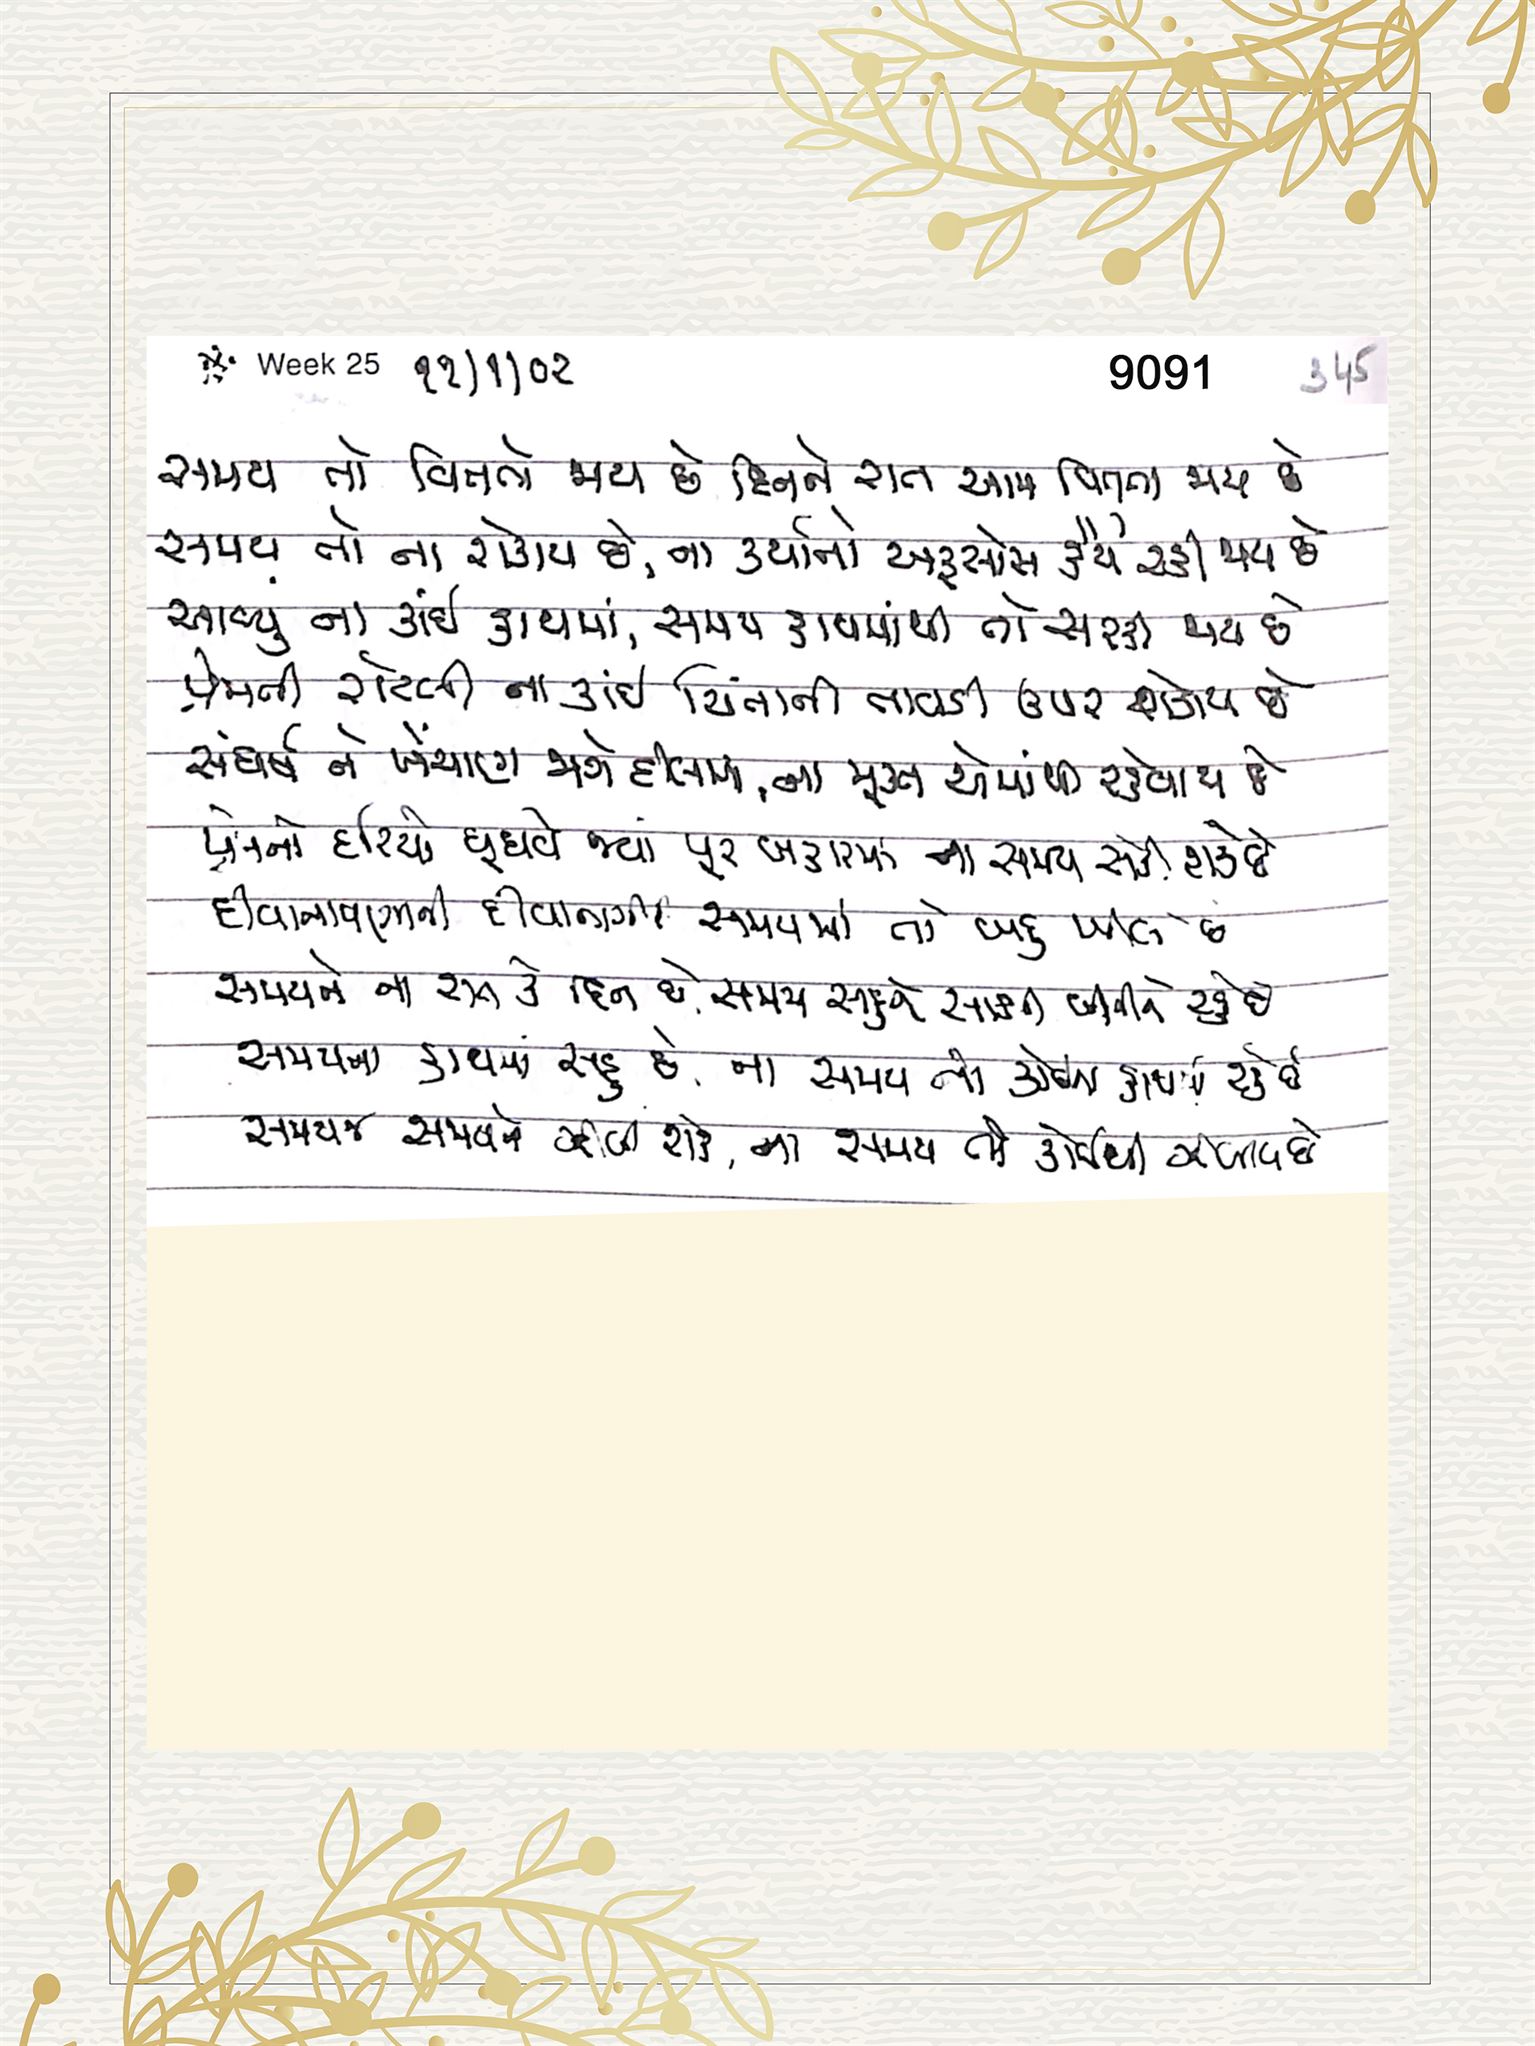 Week 25 ૧૧)૧)૦૨ 9091 345
સમય તો વિતતો જાય છે દિનને રાત આમ વિતતા જાય છે
સમય તો ના રોકાય છે, ના કર્યાનો અફસોસ હૈયે રહી જાય છે
આવ્યું ના કાંઈ હાથમાં, સમય હાથમાંથી તો સરકી જાય છે
પ્રેમની રોટલી ના કાંઈ ચિંતાની તાવડી ઉપર શેકાય છે
સંઘર્ષ ને ખેંચાણ જાગે દીલમાં, ના મુક્ત એમાંથી રહેવાય છે
પ્રેમનો દરિયો ઘૂઘવે જ્યાં પૂર બહારમાં ના સમય રોકી શકે છે
દીવાનાપણાની દીવાનગી સમયમાં તો બહુ ખીલે છે
સમયને ના રાત કે દિન છે. સમય સહુને સાક્ષી બનીને રહે છે
સમયના હાથમાં સહુ છે. ના સમય તો કોઈના હાથમાં રહે છે
સમયજ સમયને ઝીલી શકે, ના સમય તો કોઈથી ઝીલાય છે